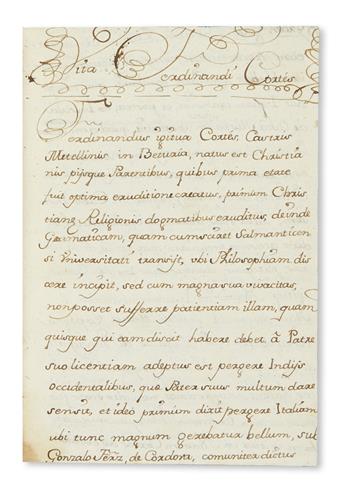 Vita Ferdinandi Cortés
Ferdinandus igitur Cortés, Castris
Metellinis in Beturia, natus est Christia
nis pijsque Parentibus, quibus prima etate
fuit optima eruditione creatus, primum Chris
tianę Religionis dogmatibus eruditus, deinde
Gramaticam, quam cum sciret Salmanticen
si Universitati transijt, ubi Philosophiam dis
cere incipit, sed cum magna sua vivacitas,
non posset sufferre patientiam illam, quam
quisque qui eam discit habere debet, à Patre
suo licentiam adeptus est pergere Indijs
occidentalibus, que Pater suus multum dare
sensit, et ideò primum dixit pergere Italiam
ubi tunc magnum gerebatur bellum, sub
Gonzalo Ferz, de Cordova, comuniter dictus